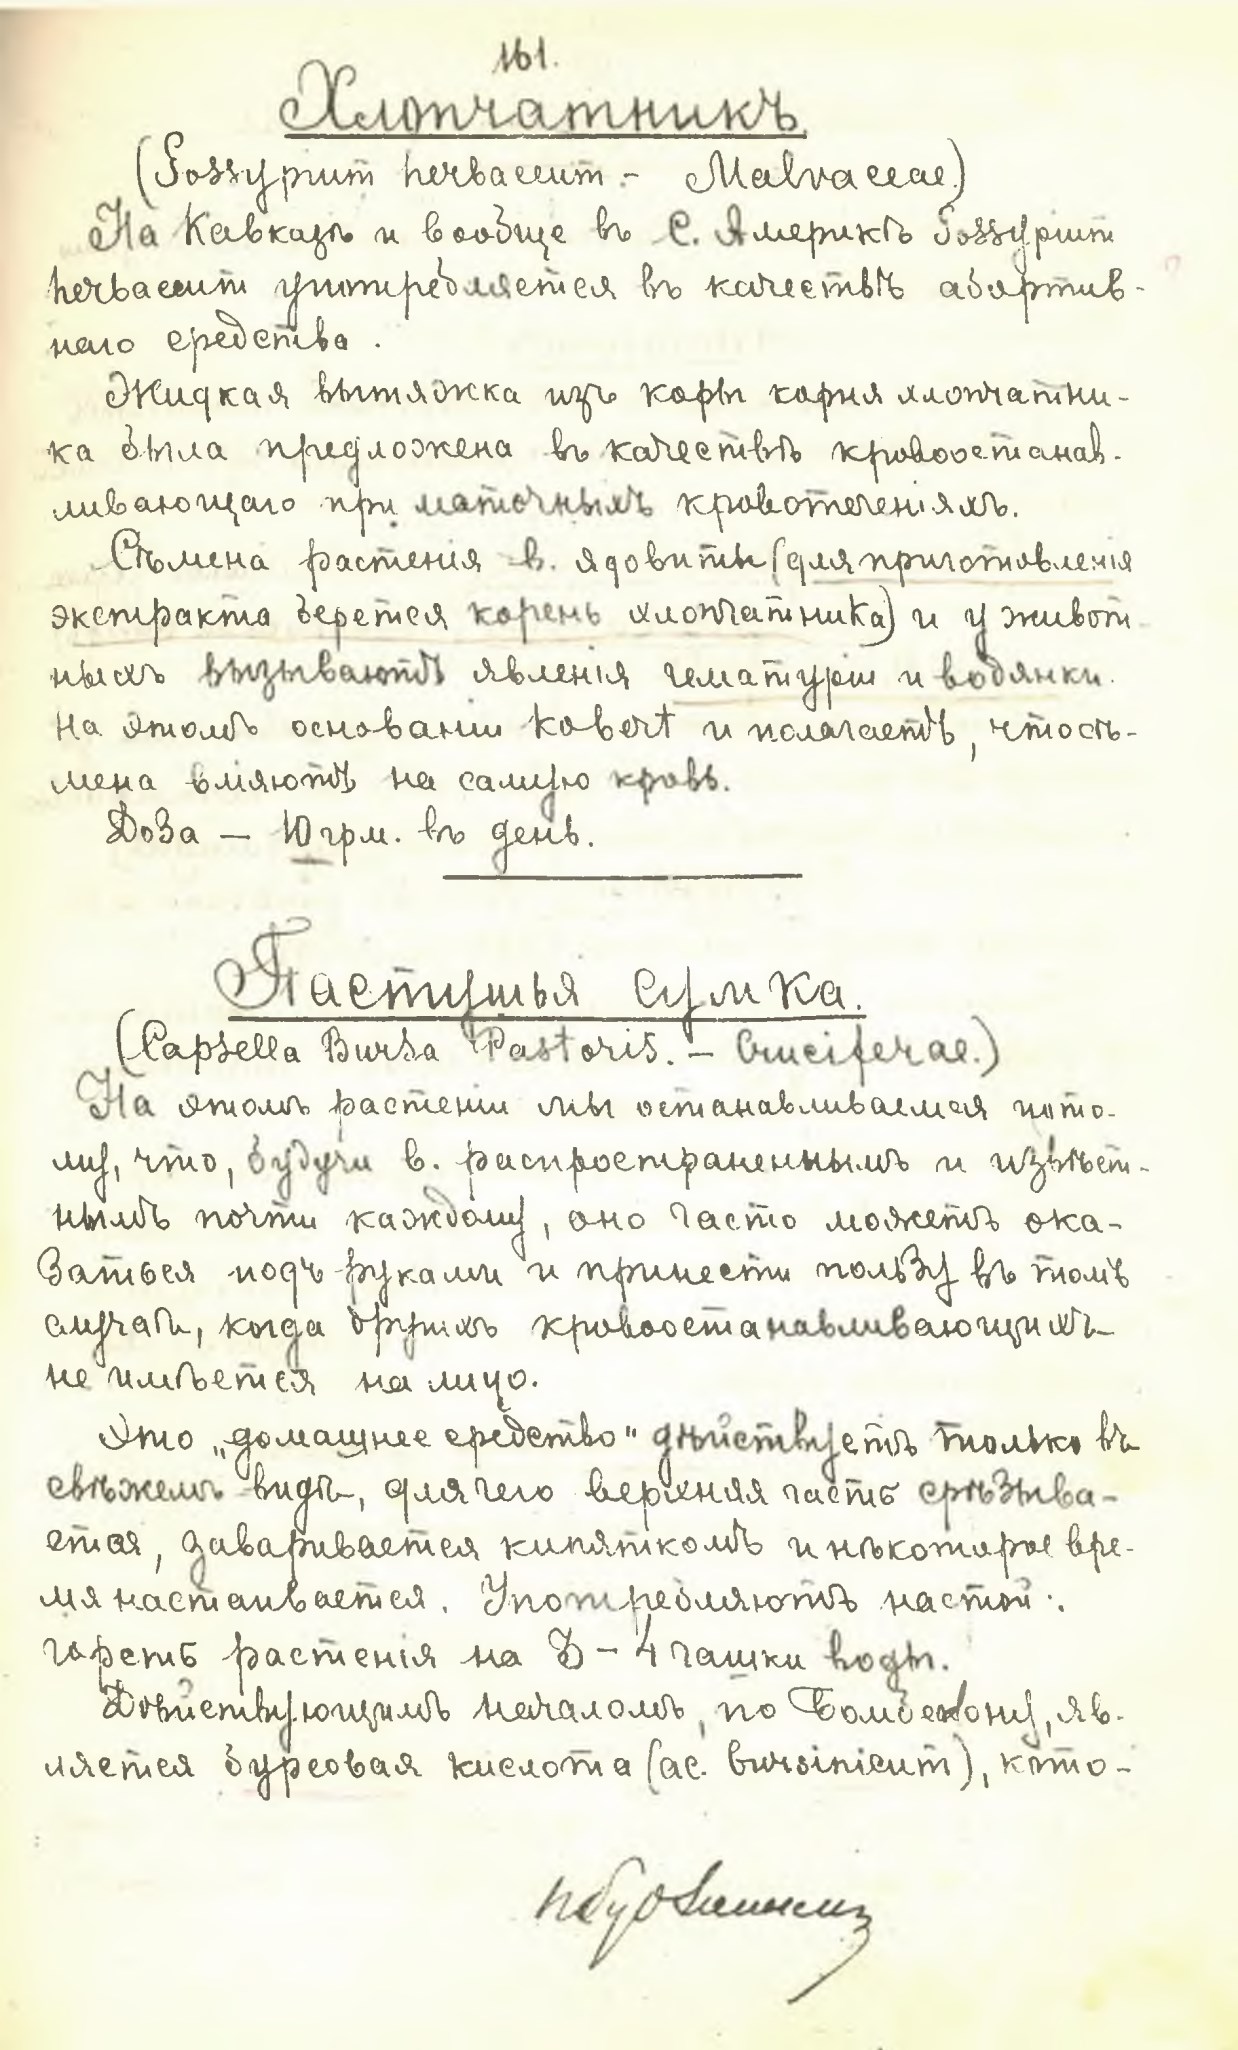 161.
Хлопчатникъ
(Gossypium herbaceum. - Malvaceae.)
На Кавказѣ и вообще въ С. Америкѣ Gossypium
herbaceum употребляется въ качествѣ абортив-
наго средства.
Жидкая вытяжка изъ коры корня хлопчатни-
ка была предложена въ качествѣ кровоостанав-
ливающаго при маточныхъ кровотеченіяхъ.
Сѣмена растенія в. ядовиты (для приготовленія
экстракта берется корень хлопчатника) и у живот-
ныхъ вызываютъ явленія гематуріи и водянки.
На этомъ основаніи Kobert и полагаетъ, что сѣ-
мена вліяютъ на самую кровь.
Доза — 10 грм. въ день.
Пастушья сумка.
(Capsella Bursa Pastoris. - Cruciferae.)
На этомъ растеніи мы останавливаемся пото-
му, что, будучи в. распространеннымъ и извѣст-
нымъ почти каждому, оно часто можетъ ока-
заться подъ руками и принести пользу въ томъ
случаѣ, когда другихъ кровоостанавливающихъ
не имѣется на лицо.
Это „домашнее средство" дѣйствуетъ только въ
свѣжемъ видѣ, для чего верхняя часть срѣзыва-
ется, заваривается кипяткомъ и нѣкоторое вре-
мя настаивается. Употребляютъ настой:
горсть растенія на 3 - 4 чашки воды.
Дѣйствующимъ началомъ, по Бомбелону, яв-
ляется бурсовая кислота (ac. bursinicum), кото-